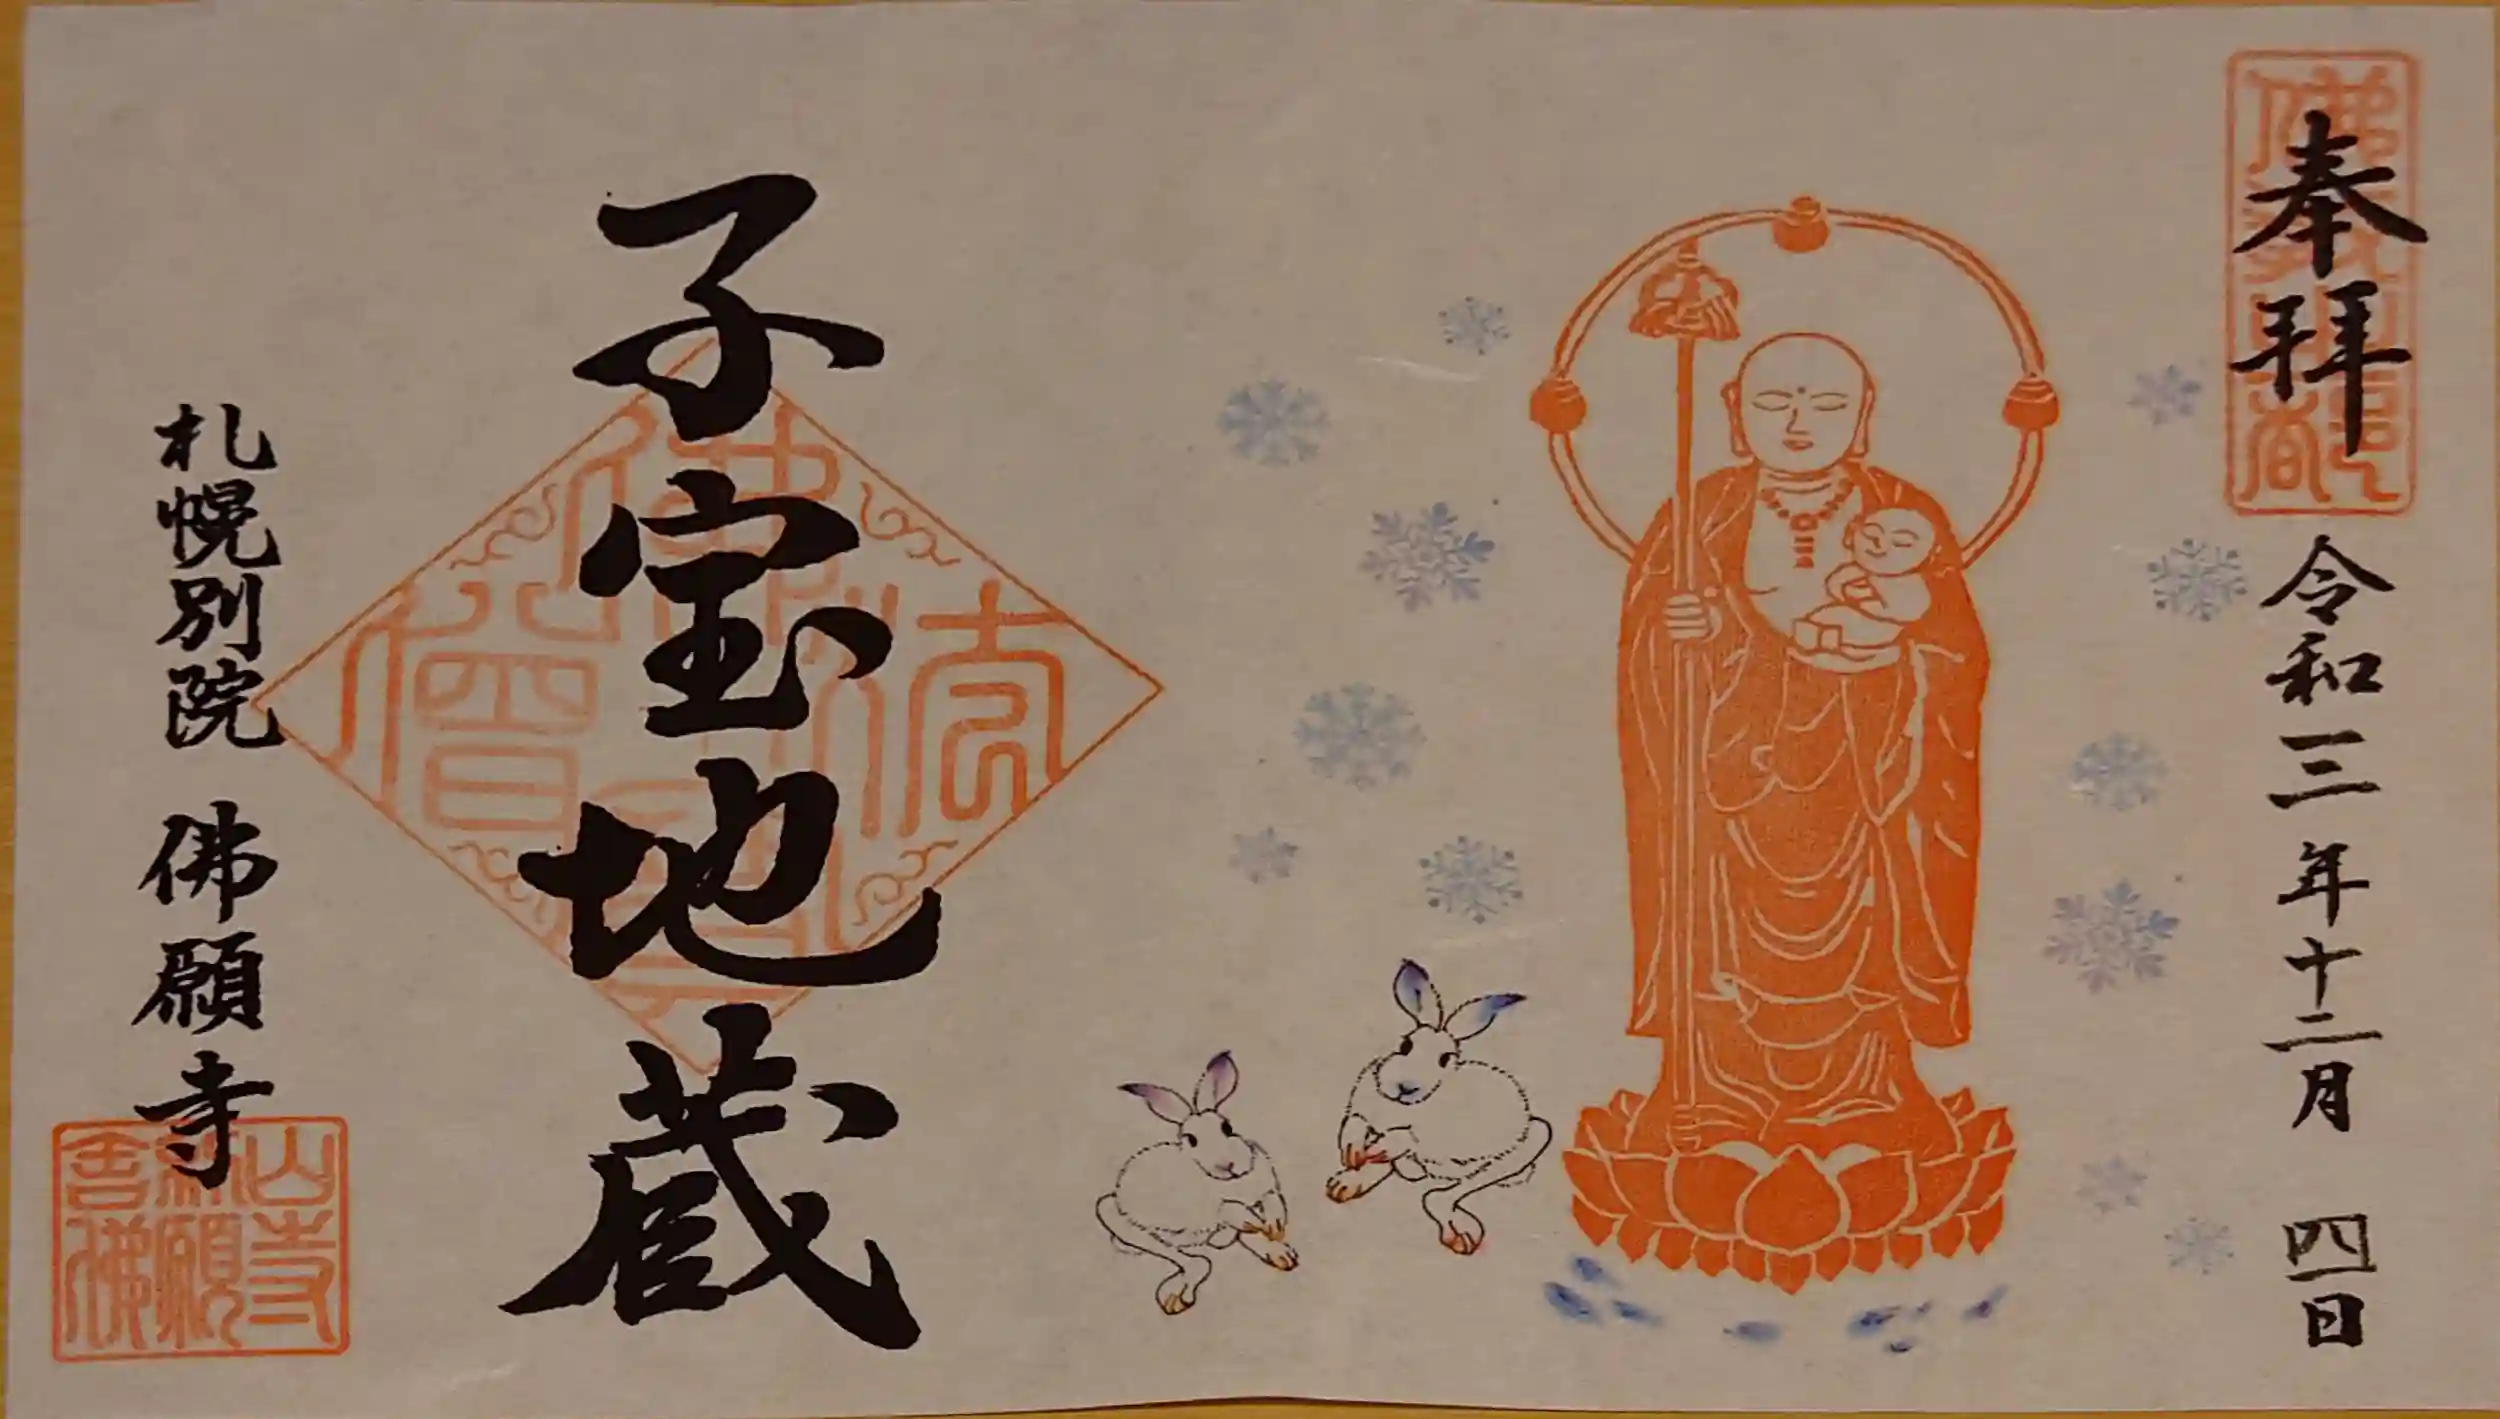 奉拝
令和三年十二月 四日
子宝地蔵
札幌別院 佛願寺